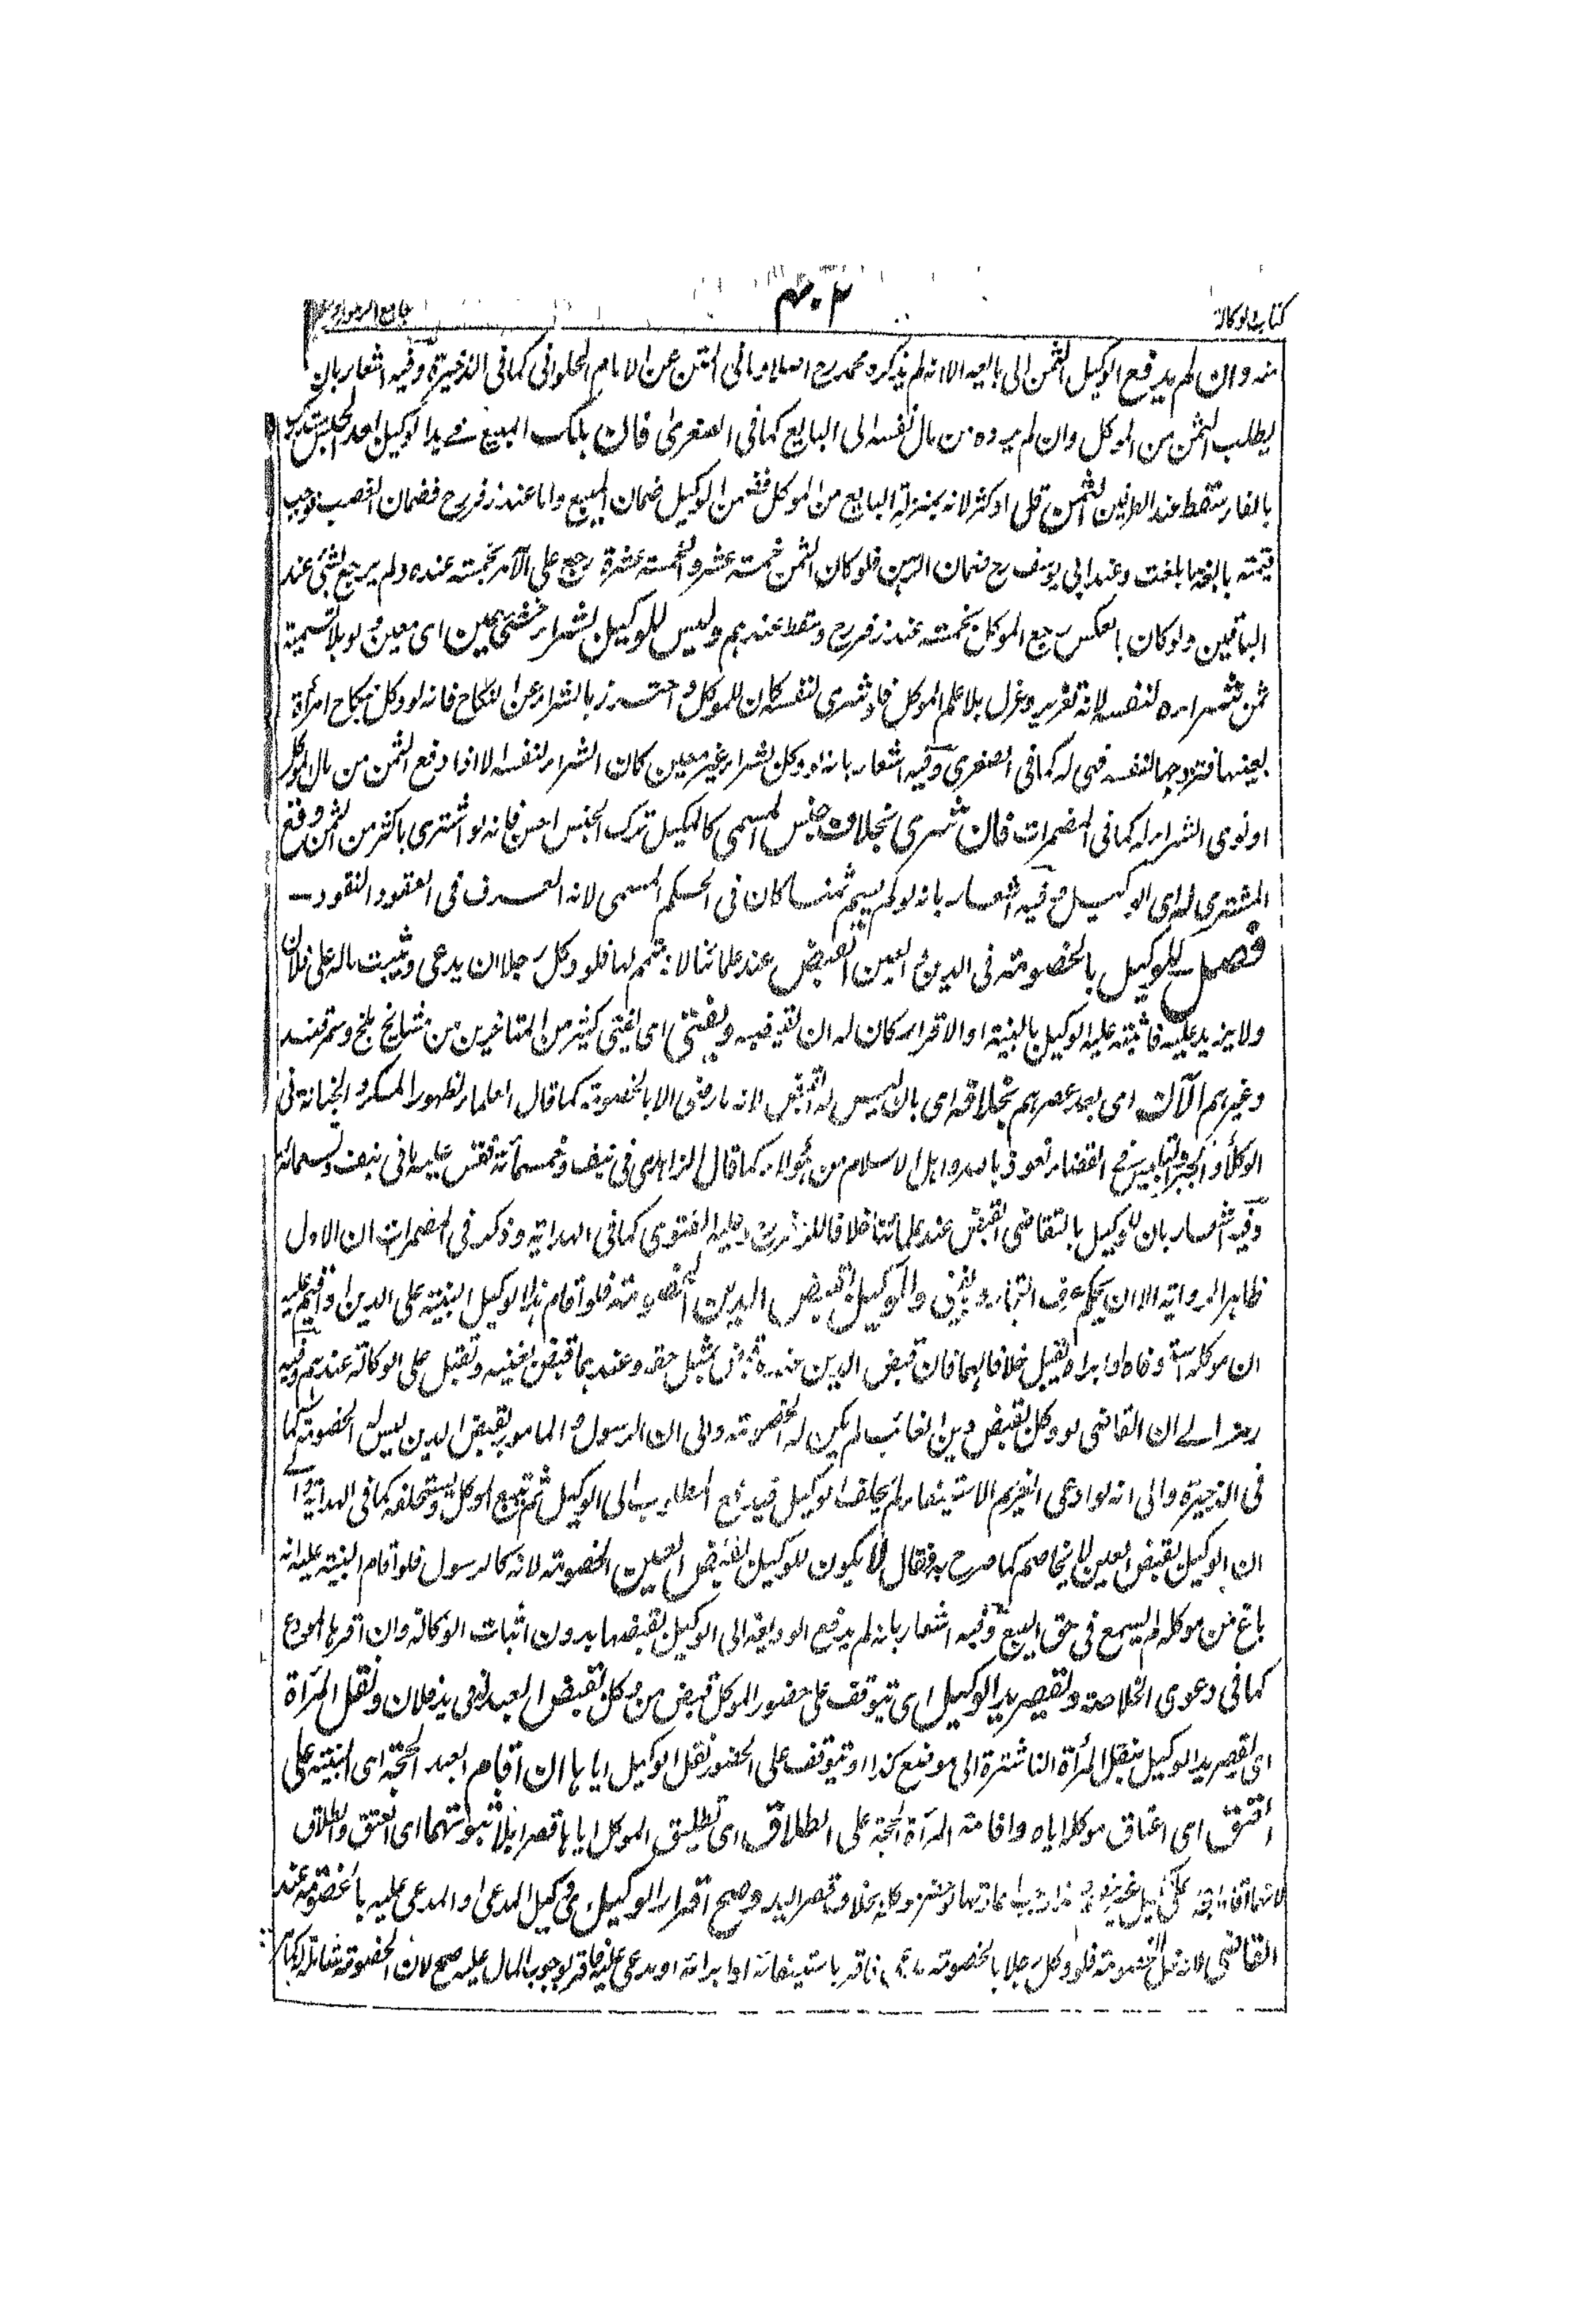 كتاب الوكالة
٤٠٢
جامع الرموز
منه وان لم يدفع الوكيل الثمن الى بايعه الا انه لم يذكره محمد رح اصلا وما فى المتن عن الامام الحلوانى كما فى الذخيرة وفيه اشعار بان
يطلب الثمن من الموكل وان لم يرده من مال نفسه الى البايع كما فى الصغرى فان هلك المبيع فى يد الوكيل بعد الحبس
بالفا سقط عند الطرفين الثمن قل او كثر لانه بمنزلة البايع من الموكل فضمن الوكيل ضمان المبيع واما عند زفر رح فضمان الغصب فوجب
قيمته بالغة ما بلغت وعند ابى يوسف رح ضمان الرهن فلو كان الثمن خمسة عشر والقيمة عشرة رجع على الآمر بخمسة عنده ولم يرجع بشئ عند
الباقيين ولو كان بالعكس رجع الموكل بخمسة عند زفر رح وسقط عندهم وليس للوكيل بشراء شئ بعين اى معين ولو بلا تسمية
ثمن شراءه لنفسه لانه تغرير وعزل بلا علم الموكل فلو شرى لنفسه كان للموكل واحترز بالشراء عن النكاح فانه لو وكل بنكاح امرأة
بعينها فتزوجها لنفسه فهى له كما فى الصغرى وفيه اشعار بانه لو وكل بشراء غير معين كان الشراء لنفسه الا اذا دفع الثمن من مال الموكل
او نوى الشراء له كما فى المضمرات فان شرى بخلاف جنس المسمى كالمكيل ترك الجنس احسن فانه لو اشترى باكثر من الثمن وقع
المشترى له اى الوكيل وفيه اشعار بانه لو لم يسم ثمنا كان فى الحكم المسمى لانه العرف فى العقود والنقود
فصل للوكيل بالخصومة فى الدين والعين القبض عند علمائنا لا تتمم لها فلو وكل رجلا ان يدعى ويثبت ماله على فلان
ولا يزيد عليه فاثبته عليه الوكيل بالبينة او الاقرار كان له ان يقبضه ويفتى اى افتى كثير من المتاخرين من مشايخ بلخ وسمرقند
وغيرهم الآن اى بعد عصرهم بخلافه اى بان ليس له القبض لانه ما رضى الا بالخصومة كما قال العلماء لظهور المكر والخيانة فى
الوكلاء والجبر والتلبيس فى القضاء نعوذ بالله واهل الاسلام من هؤلاء كما قال الزاهدى فى نيف وخمسمائة فقس عليه ما فى نيف وتسعمائة
وفيه اشعار بان للوكيل بالتقاضى القبض عند علمائنا خلافا لزفر رح وعليه الفتوى كما فى الهداية وذكر فى المضمرات ان الاول
ظاهر الرواية الا ان يحكم عرف التجار ويفتى وللوكيل بقبض الدين الخصومة فلو اقام هذا الوكيل البينة على الدين او اقيم عليه
ان موكله استوفاه او ابراه تقبل خلافا لهما فان قبض الدين عنده قبض بمثل حقه وعندهما قبض بعينه وتقبل على الوكالة عندهم وفيه
رمز الى ان القاضى لو وكل بقبض دين الغائب لم يكن له الخصومة والى ان الرسول والمامور بقبض الدين ليس له الخصومة كما
فى الذخيرة والى انه لو ادعى الغريم الاستيفاء لم يحلف الوكيل فيدفع المطلوب الى الوكيل ثم يتبع الموكل ويستحلفه كما فى الهداية والى
ان الوكيل بقبض العين لا يخاصم كما صرح به فقال لا يكون للوكيل بقبض العين الخصومة لانه كالرسول فلو اقام البينة عليه انه
باع من موكله لم يسمع فى حق البيع وفيه اشعار بانه لم يدفع الوديعة الى الوكيل بقبضها بدون اثبات الوكالة وان اقر بها المودع
كما فى دعوى الخلاصة وتقصر يد الوكيل اى تتوقف على حضور الموكل قبض من وكل بقبض العبد الذى فى يد فلان ونقل المرأة
اى تقصر يد الوكيل بنقل المرأة الناشزة الى موضع كذا او تتوقف على الحضور نقل الوكيل اياها ان اقام العبد الحجة اى البينة على
العتق اى اعتاق موكله اياه واقامة المرأة الحجة على الطلاق اى تطليق الموكل اياها قصرا بلا ثبوتهما اى العتق والطلاق
وصح اقرار الوكيل اى وكيل المدعى او المدعى عليه بالخصومة عند
القاضى لانه محل الخصومة فلو وكل رجلا بالخصومة فاقر باستيفائه او ابرائه او يدعى عليه فاقر بوجوب المال عليه صح لان الخصومة